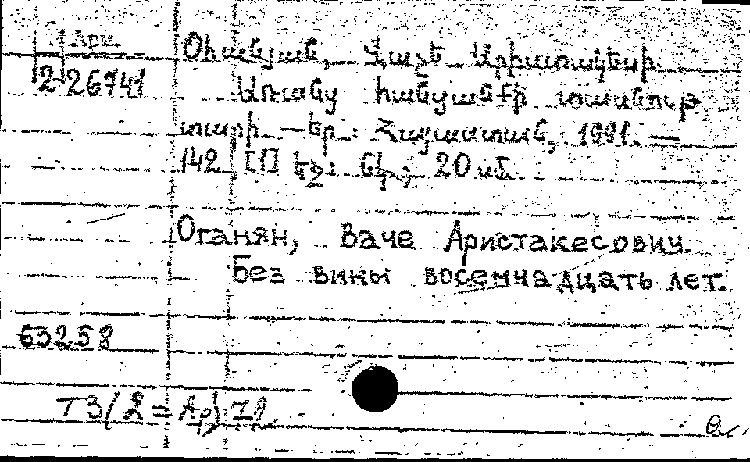 Арм.
2 26741
Օհանյան, Վաչե Արիստակեսի
Առանց հանցանքի տասնութ
տարի. — Եր.: Հայաստան, 1991. —
142 [1] էջ: նկ.; 20 սմ.
Оганян, Ваче Аристакесович.
Без вины восемнадцать лет.
63258
Т3(2=Ар)